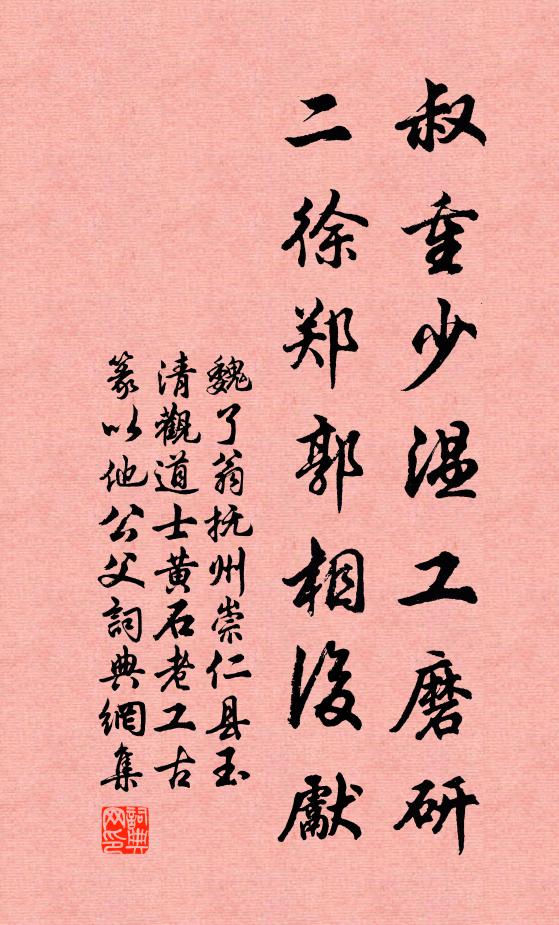 叔重少温工磨研
二徐郑郭相後獻
魏了翁抚州崇仁县玉
清觀道士黄石老工古
篆以他公父詞典網集
詞典网印